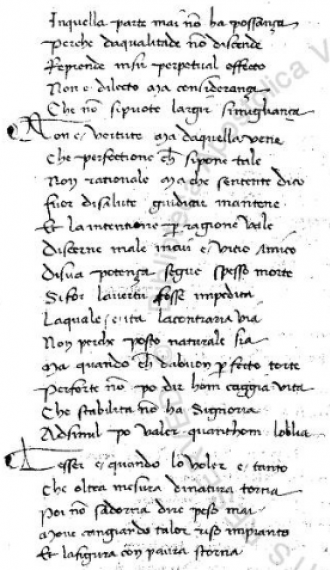 Inquella parte mai nõ ha possanza
Perche daqualitade nõ discende
Resplende insu perpetual effecto
Non e dilecto ma consideranza
Che nõ sipuote largir simiglianza
Non e vertute ma daquella vene
Che perfectione ch̃ sipone tale
Non rationale ma che sentente dico
fuor disalute giudicar mantene
Et la intentione ꝑ ragione vale
Discerne male incui e vitio Amico
Disua potenza segue spesso morte
Si for lavertu fosse impedita
Laquale aita la contraria via
Non perche posto naturale sia
Ma quando ch̃ dabuon ꝑfecto torte
Perforte nõ po dir hom caggia vita
Che stabilita nõ ha Signoria
Adsimil po valer quanthom loblia
Lesser e quando lo voler e tanto
Che oltra mesura dinatura torna
Poi nõ sadorna dire poso mai
Move cangiando talor riso impianto
Et lafigura con paura storna